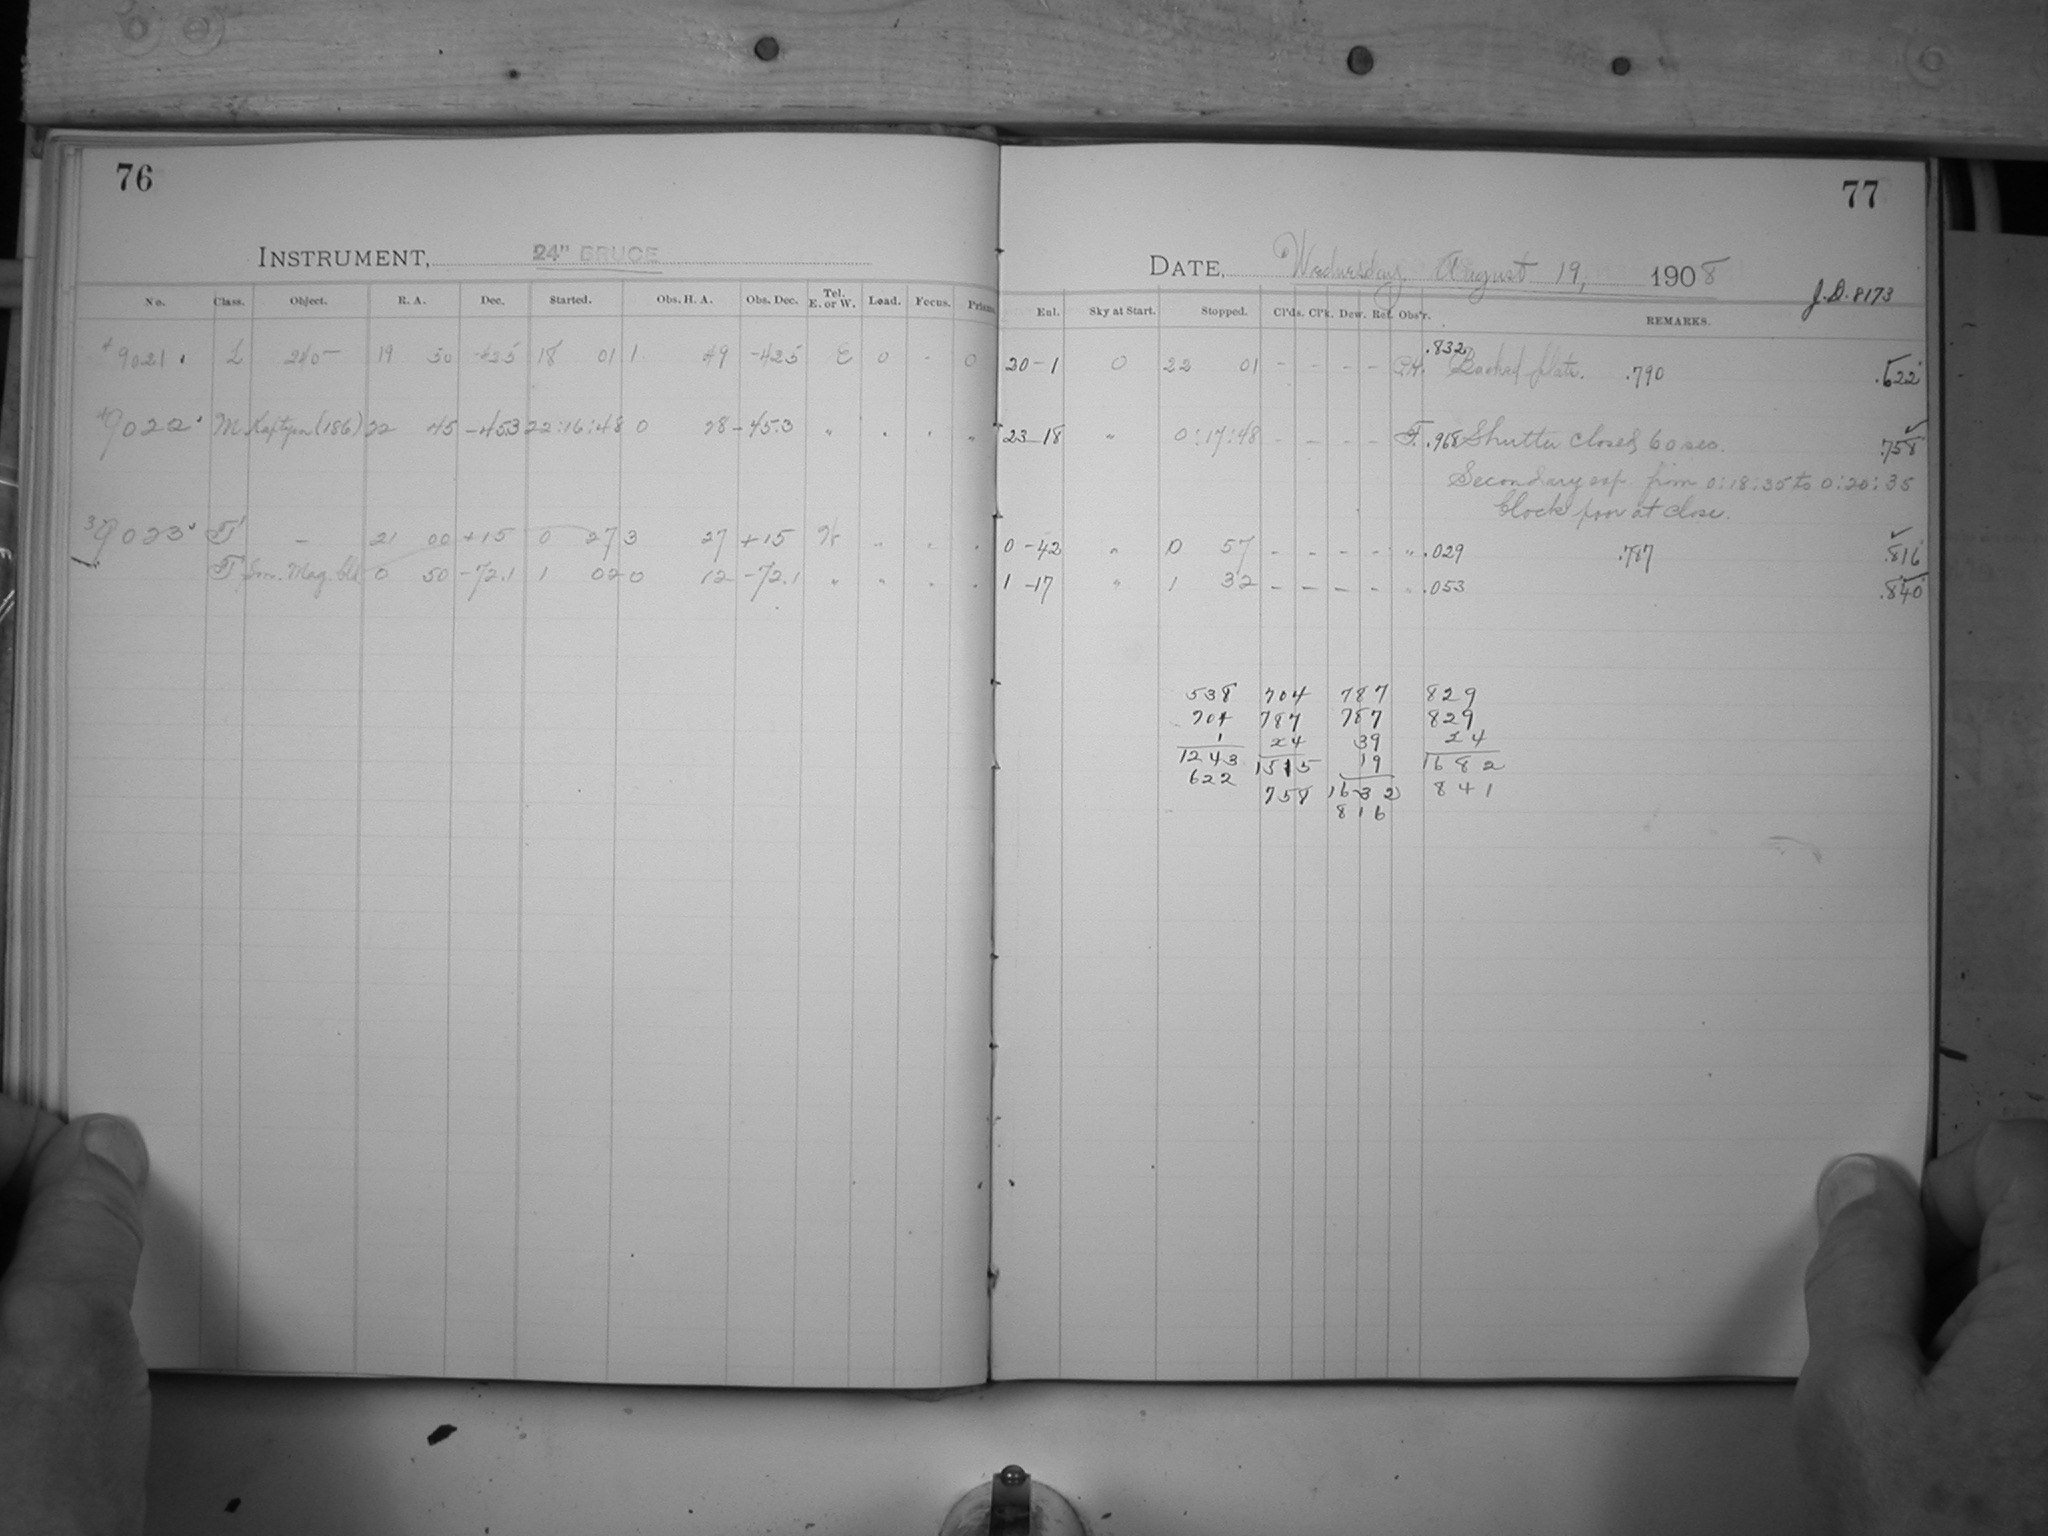 76
77
INSTRUMENT, 24" BRUCE
DATE, Wednesday August 19, 1908
J.D. 8173
No. Class. Object. R. A. Dec. Started. Obs. H. A. Obs. Dec. Tel. E. or W. Load. Focus. Prisms
Eul. Sky at Start. Stopped. Cl'ds. Cl'k. Dew. Ref. Obs'r. REMARKS.
9021 L 240 19 50 -425 18 01 1 49 -425 E 0 - 0 20-1 0 22 01 - - - - .832 Backed plate. .790 .622
9022 M Kaptyen (186) 22 45 -45.3 22:16:48 0 28 -45.3 " " " " 23-18 " 0:17:48 - - - - F. .968 Shutter closed 60 sec. .758
Secondary exp. from 0:18:35 to 0:20:35
Clock poor at close.
9023 F - 21 00 +15 0 27 3 27 +15 W " " " 0-42 " 0 57 - - - - " .029 .787 .816
F Sm. Mag. Cld 0 50 -72.1 1 02 0 12 -72.1 " " " " 1-17 " 1 32 - - - - " .053 .840
538 704 787 829
704 787 787 829
1 24 39 24
1243 1515 19 1682
622 758 1632 841
816